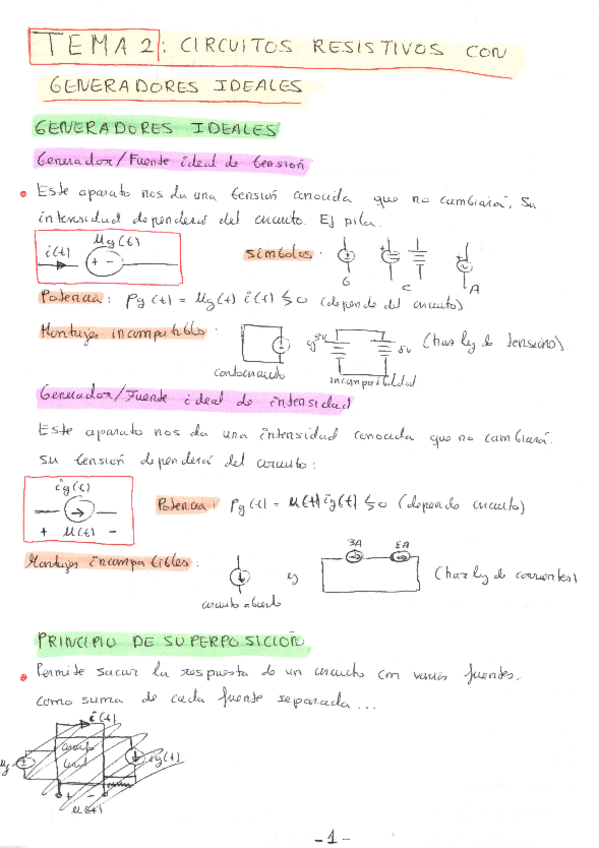 TEMA 2: CIRCUITOS RESISTIVOS CON
GENERADORES IDEALES
GENERADORES IDEALES
Generador/Fuente ideal de tensión
Este aparato nos da una tensión conocida que no cambiará. Su
intensidad dependerá del circuito. Ej pila.
i(t) Ug(t)
+ -
Símbolos:
G C A
Potencia: Pg(t) = Ug(t) i(t) ≶ 0 (depende del circuito)
Montajes incompatibles:
cortocircuito
incompatibilidad
(haz ley de tensiones).
Generador/Fuente ideal de intensidad
Este aparato nos da una intensidad conocida que no cambiará.
su tensión dependerá del circuito:
ig(t)
+ U(t) -
Potencia: Pg(t) = U(t) ig(t) ≶ 0 (depende circuito)
Montajes incompatibles:
circuito abierto
ej
3A 8A
(haz ley de corrientes)
PRINCIPIO DE SUPERPOSICIÓN
Permite sacar la respuesta de un circuito con varias fuentes,
como suma de cada fuente separada...
i(t)
ig(t)
+ -
U(t)
-1-